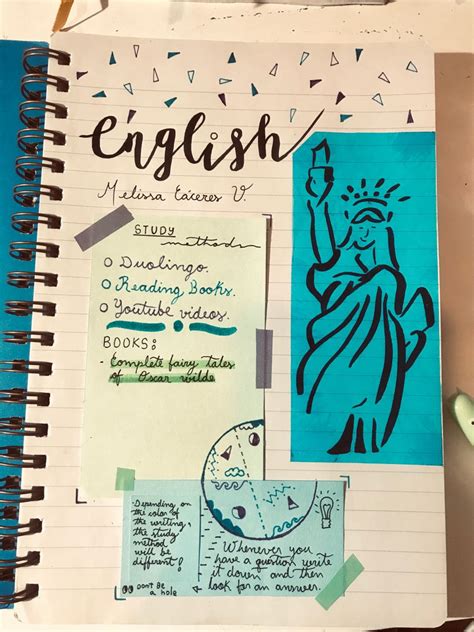 English
Melissa Cáceres V.
STUDY
methods
Duolingo.
Reading Books.
Youtube videos.
BOOKS:
- Complete fairy tales
of Oscar wilde
Depending on
the color of
the writing,
the study
method
will be
different!
Don't Be
a hole
Whenever you
have a question write
it down and then
look for an answer.